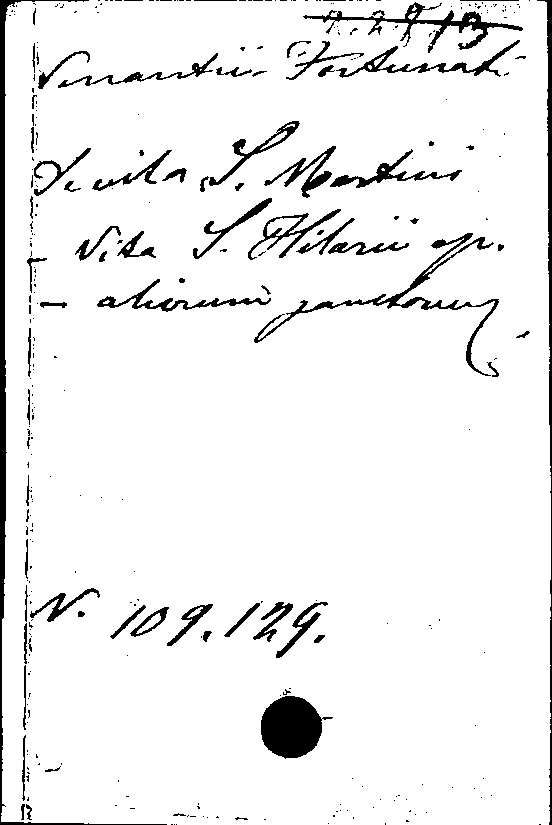 Venantii Fortunati
De vita S. Martini
- Vita S. Hilarii ep.
- aliorum sanctorum
N. 109.129.